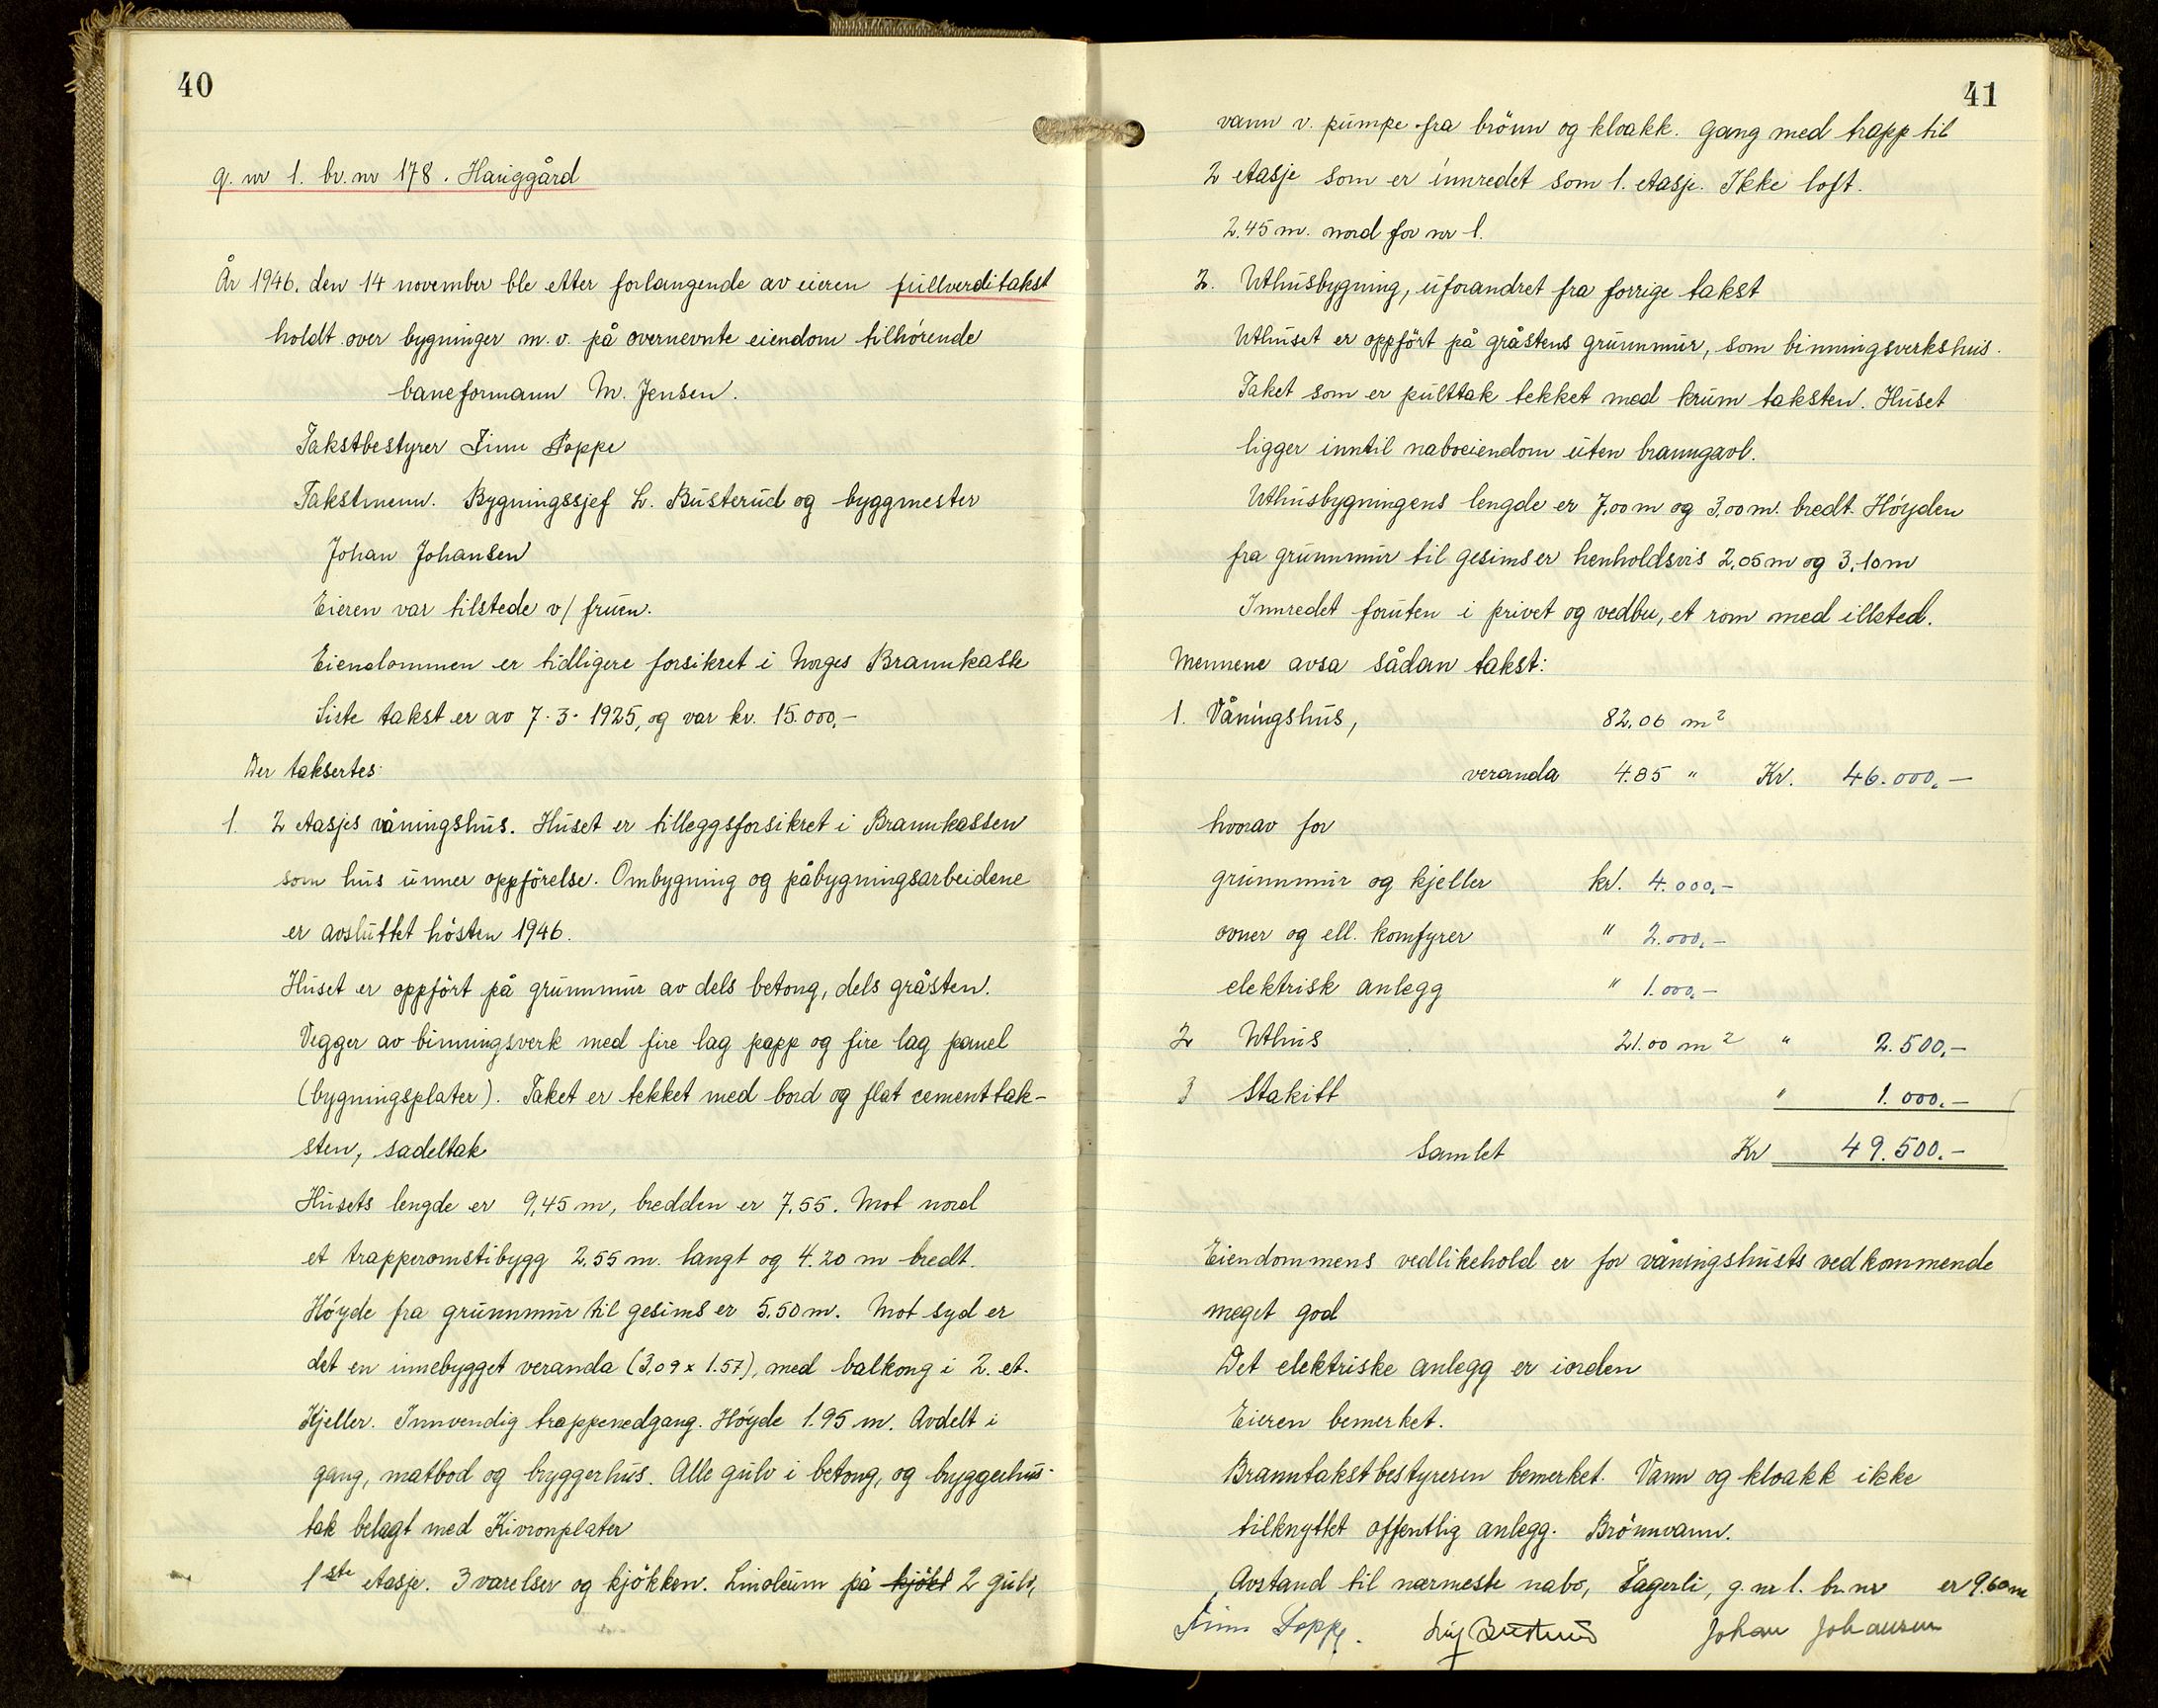 40
g. nr 1. br. nr 178. Hauggård
År 1946. den 14 november ble etter forlangende av eieren fullverditakst
holdt over bygninger m. v. på overnevnte eiendom tilhørende
baneformann M. Jensen.
Takstbestyrer Finn Poppe
Takstmenn. Bygningssjef L. Busterud og byggmester
Johan Johansen
Eieren var tilstede v/ fruen.
Eiendommen er tidligere forsikret i Norges Brannkasse
Siste takst er av 7-3-1925, og var kr. 15.000,-
Der taksertes:
1. 2 etasjes våningshus. Huset er tilleggsforsikret i Brannkassen
som hus unner oppførelse. Ombygning og påbygningsarbeidene
er avsluttet høsten 1946.
Huset er oppført på grunnmur av dels betong, dels gråsten.
Vegger av binningsverk med fire lag papp og fire lag panel
(bygningsplater). Taket er tekket med bord og flat cementtak-
sten, sadeltak
Husets lengde er 9,45 m, bredden er 7,55. Mot nord
et trapperomstibygg 2,55 m. langt og 4.20 m bredt.
Høyde fra grunnmur til gesims er 5,50 m. Mot syd er
det en innebygget veranda (3,09 x 1.57), med balkong i 2. et.
Kjeller. Innvendig trappenedgang. Høyde 1.95 m. Avdelt i
gang, matbod og bryggerhus. Alle gulv i betong, og bryggerhus-
tak belagt med Kivronplater
1ste etasje. 3 varelser og kjøkken. Linoleum på kjøkk 2 gulv,
41
vann v. pumpe fra brønn og kloakk. Gang med trapp til
2 etasje som er innredet som 1. etasje. Ikke loft.
2,45 m. nord for nr 1.
2. Uthusbygning, uforandret fra forrige takst
Uthuset er oppført på gråstens grunnmur, som binningsverkshus.
Taket som er pulttak tekket med krum taksten. Huset
ligger inntil naboeiendom uten branngavl.
Uthusbygningens lengde er 7,00 m og 3,00 m. bredt. Høyden
fra grunnmur til gesimser henholdsvis 2,05 m og 3,10 m
Innredet foruten i privet og vedbu, et rom med illsted.
Mennene avsa sådan takst:
1. Våningshus, 82,06 m²
veranda 4.85 " Kr. 46.000,-
hvorav for
grunnmur og kjeller kr. 4.000,-
ovner og ell. komfyrer " 2.000,-
elektrisk anlegg " 1.000,-
2 Uthus 21.00 m² " 2.500,-
3 Stakitt " 1.000.-
Samlet Kr 49.500.-
Eiendommens vedlikehold er for våningshusts vedkommende
meget god
Det elektriske anlegg er iorden
Eieren bemerket.
Branntakstbestyreren bemerket. Vann og kloakk ikke
tilknyttet offentlig anlegg. Brønnvann.
Avstand til nærmeste nabo, Fagerli, g. nr 1. br. nr er 9.60 m
Finn Poppe. Busterud Johan Johansen